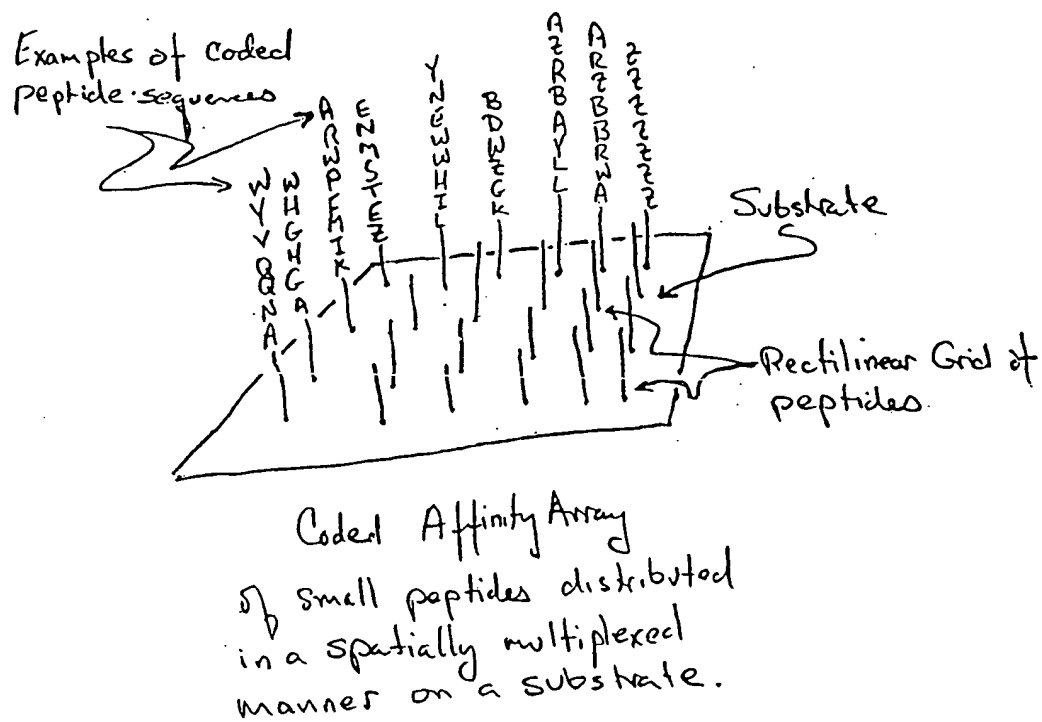 Examples of Coded
peptide sequences
WYVQQNA
WHGHGA
ARWPFHIK
ENMSTEZ
YNEWWHIL
BDWZGK
AZRBAYLL
ARZBBRWA
ZZZZZZZZ
Substrate
Rectilinear Grid of
peptides.
Coded Affinity Array
of small peptides distributed
in a spatially multiplexed
manner on a substrate.